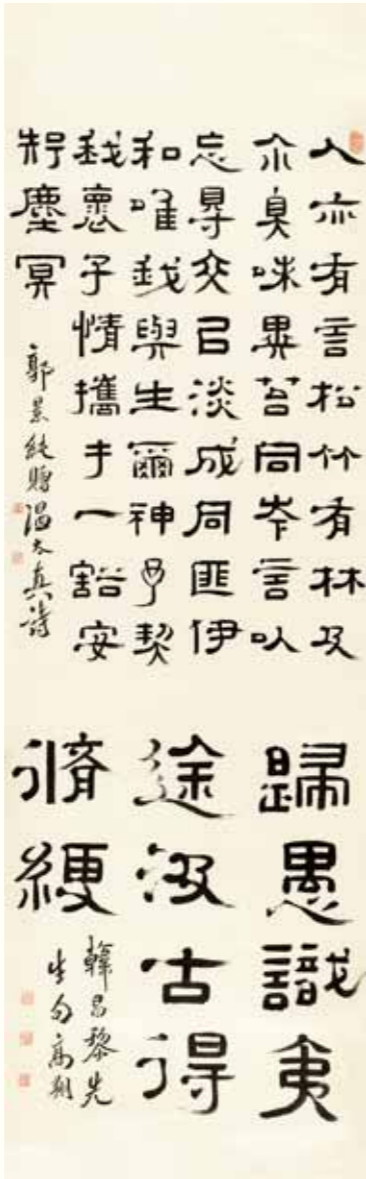 人亦有言松竹有林及
尒臭味異苔同岑言以
忘㝵交㠯淡成同匪伊
和唯我與生爾神予契
我褱子情攜手一豁安
塵冥
郭景純贈溫太真詩
歸愚識夷
途汲古得
脩綆
韓昌黎先
生句高翔